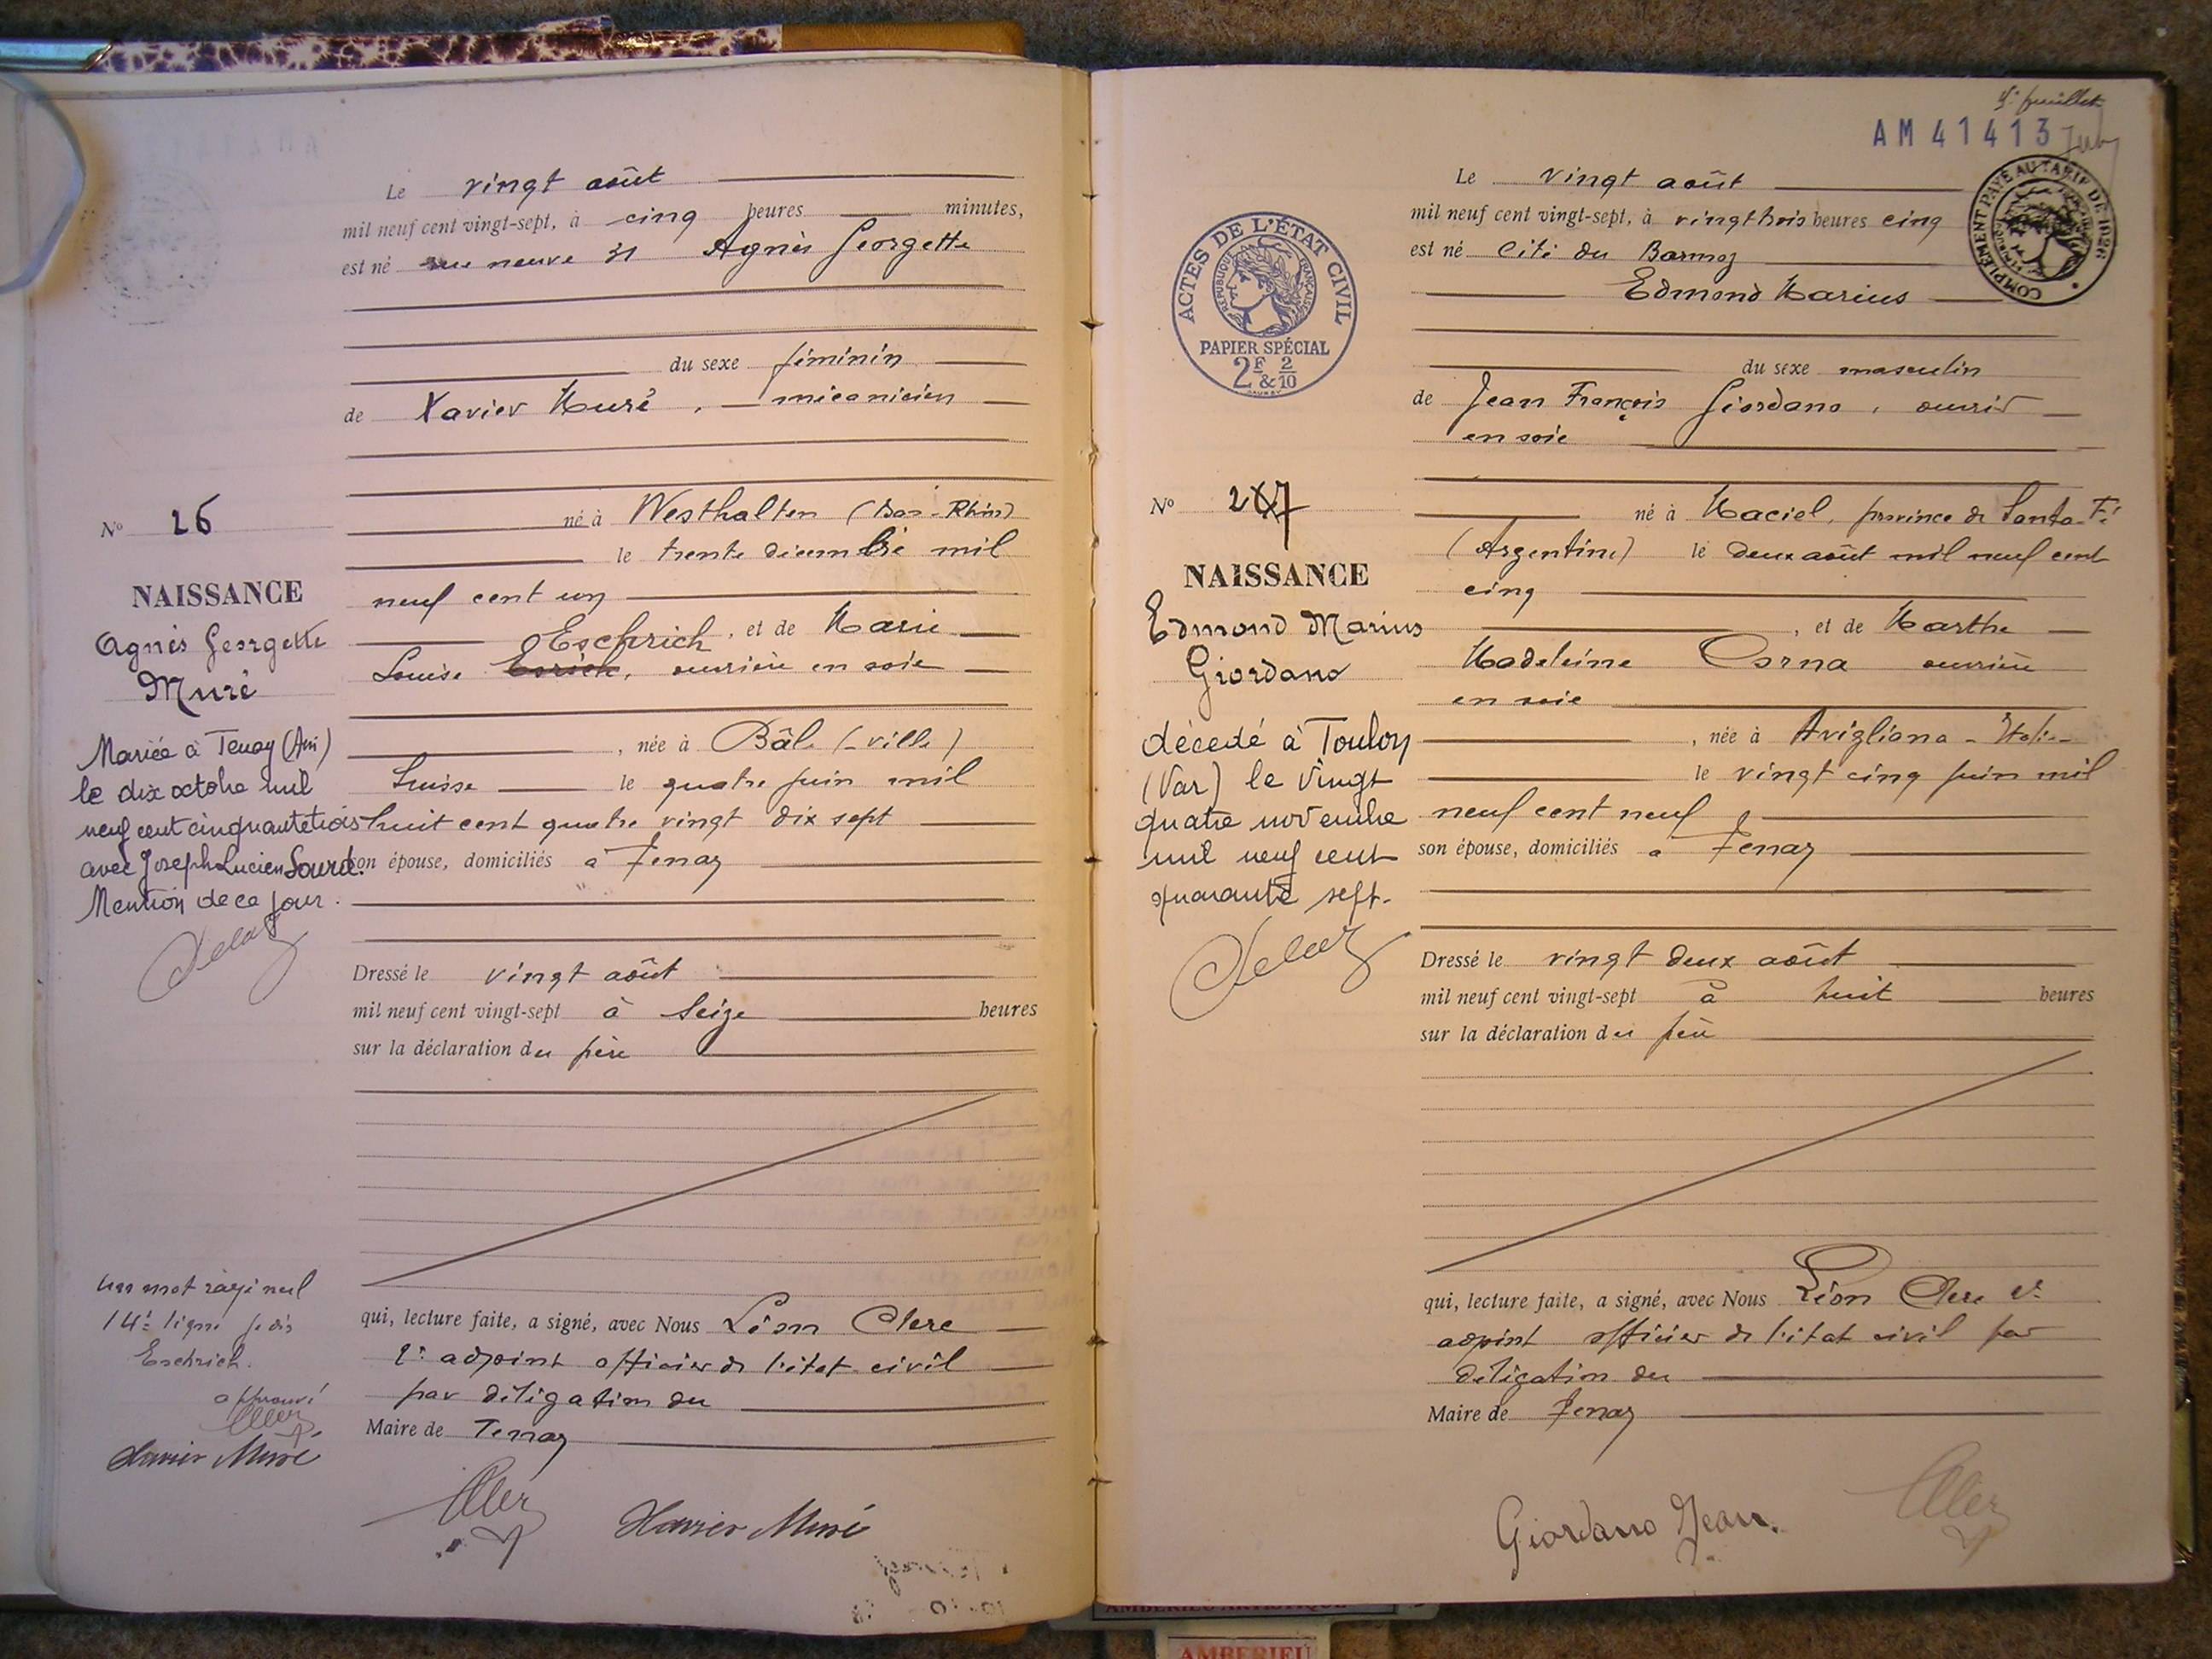 Le vingt août
mil neuf cent vingt-sept, à cinq heures minutes,
est né rue neuve 31 Agnès Georgette
du sexe féminin
de Xavier Muré, mécanicien
né à Westhalten (Bas-Rhin)
le trente décembre mil
neuf cent un
Eschrich, et de Marie
Louise Esrich, ouvrière en soie
, née à Bâle (-ville)
Suisse le quatre juin mil
huit cent quatre vingt dix sept
son épouse, domiciliés à Tenay
Dressé le vingt août
mil neuf cent vingt-sept à seize heures
sur la déclaration du père
qui, lecture faite, a signé, avec Nous Léon Clerc
2e adjoint officier de l'état civil
par délégation du
Maire de Tenay
Xavier Muré
No 26
NAISSANCE
Agnès Georgette
Muré
Mariée à Tenay (Ain)
le dix octobre mil
neuf cent cinquante trois
avec Joseph Lucien Sourd.
Mention de ce jour.
Un mot rayé nul
14e ligne je dis
Eschrich.
approuvé
Xavier Muré
5e feuillet
AM 41413
COMPLÉMENT PAYÉ AU TARIF DE 1926
ACTES DE L'ÉTAT CIVIL
RÉPUBLIQUE FRANÇAISE
PAPIER SPÉCIAL
2F & 2/10
Le vingt août
mil neuf cent vingt-sept, à vingt trois heures cinq
est né Cité du Barmoz
Edmond Marius
du sexe masculin
de Jean François Giordano, ouvrier
en soie
né à Maciel, province de Santa-Fé
(Argentine) le deux août mil neuf cent
cinq
, et de Marthe
Madeleine Corna ouvrière
en soie
, née à Avigliana - Italie
le vingt cinq juin mil
neuf cent neuf
son épouse, domiciliés à Tenay
Dressé le vingt deux août
mil neuf cent vingt-sept à huit heures
sur la déclaration du père
qui, lecture faite, a signé, avec Nous Léon Clerc 2e
adjoint officier de l'état civil par
délégation du
Maire de Tenay
Giordano Jean.
No 27
NAISSANCE
Edmond Marius
Giordano
décédé à Toulon
(Var) le vingt
quatre novembre
mil neuf cent
quarante sept.
AMBERIEU ARTISTIQUE
AMBERIEU